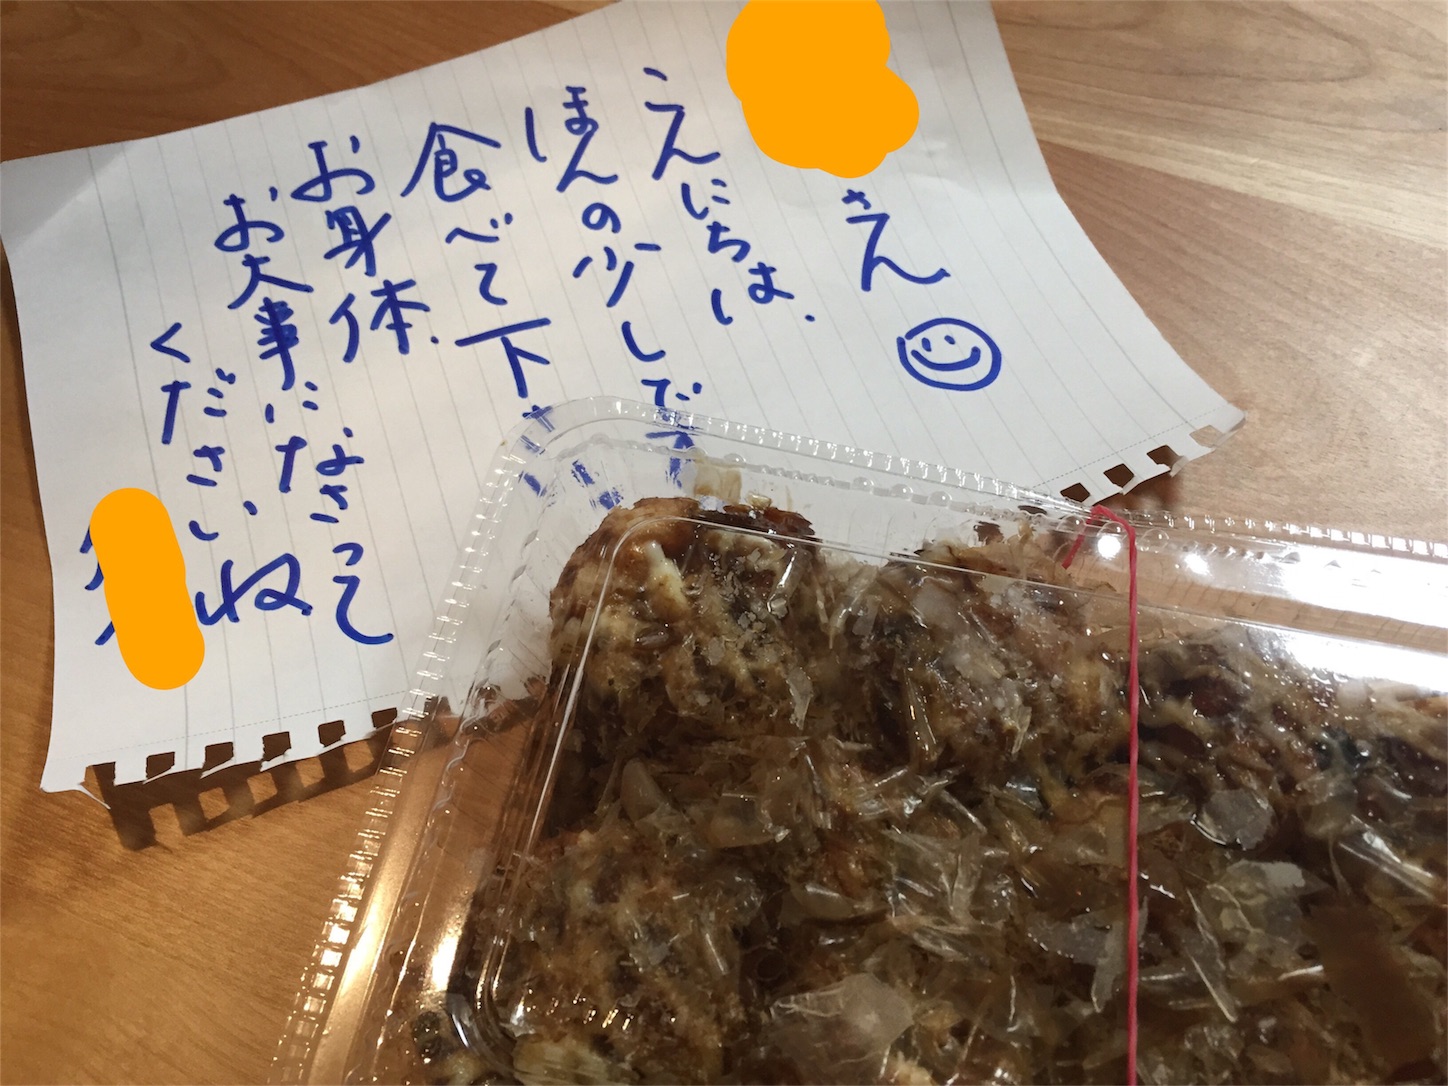 さん
こんにちは、
ほんの少しです
食べて下さい
お身体
お大事になさって
くださいね